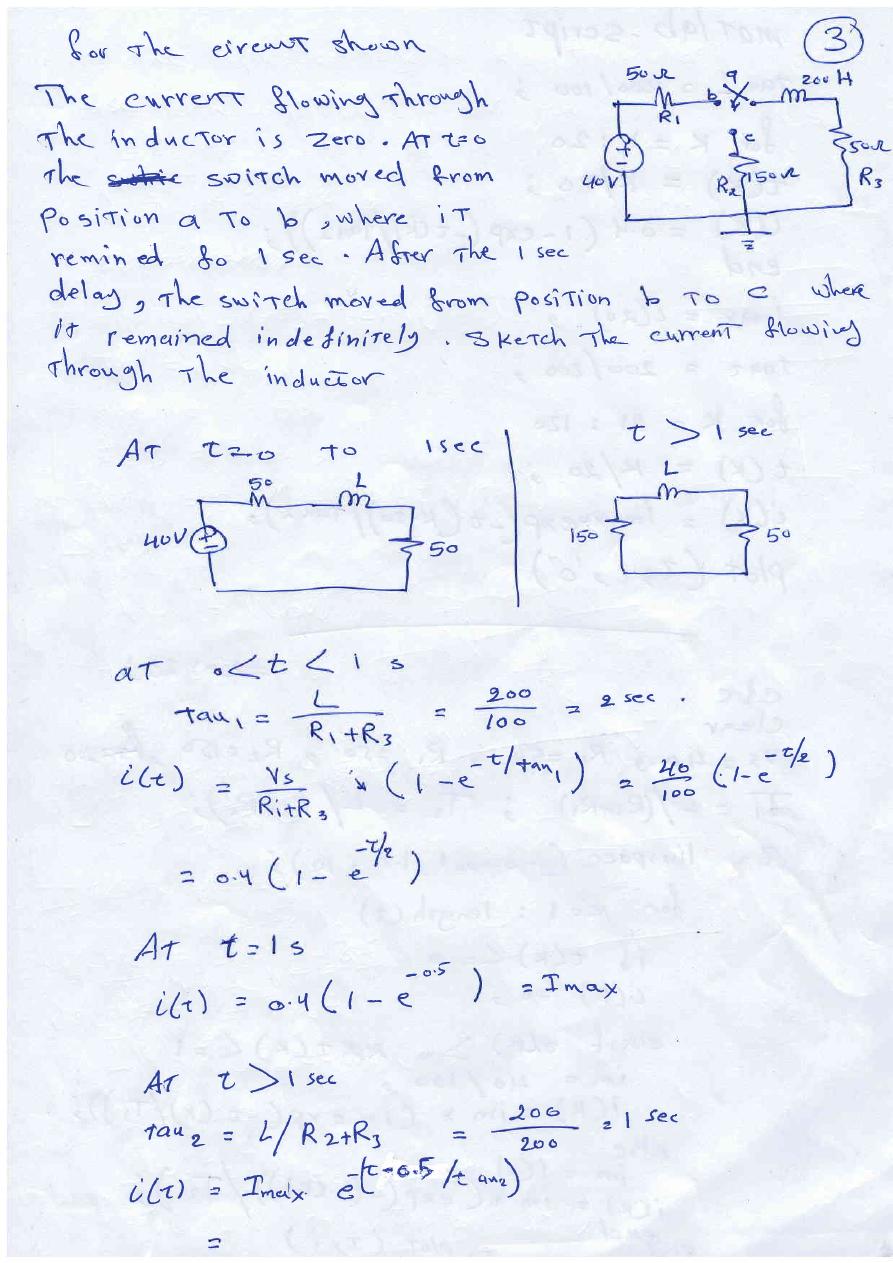 for The circuit shown
3
The current flowing Through
The inductor is Zero . AT t=0
The switch moved from
Position a To b , where iT
remin ed fo 1 sec . After The 1 sec
delay , The switch moved from Position b To c where
it remained indefinitely . Sketch The current flowing
Through The inductor
50 Ω
R1
a
b
200 H
c
40V
R2
150Ω
50Ω
R3
AT t=0 to 1sec
t > 1 sec
50
L
40V
50
L
150
50
aT 0<t < 1 s
tau1 = L / R1+R3 = 200 / 100 = 2 sec .
i(t) = Vs / R1+R3 (1 - e^-t/tau1) = 40 / 100 (1-e^-t/2)
= 0.4 (1- e^-t/2)
At t=1s
i(t) = 0.4 (1 - e^-0.5) = Imax
AT t > 1 sec
tau2 = L/ R2+R3 = 200 / 200 = 1 sec
i(t) = Imax. e^-(t-0.5/tau2)
=